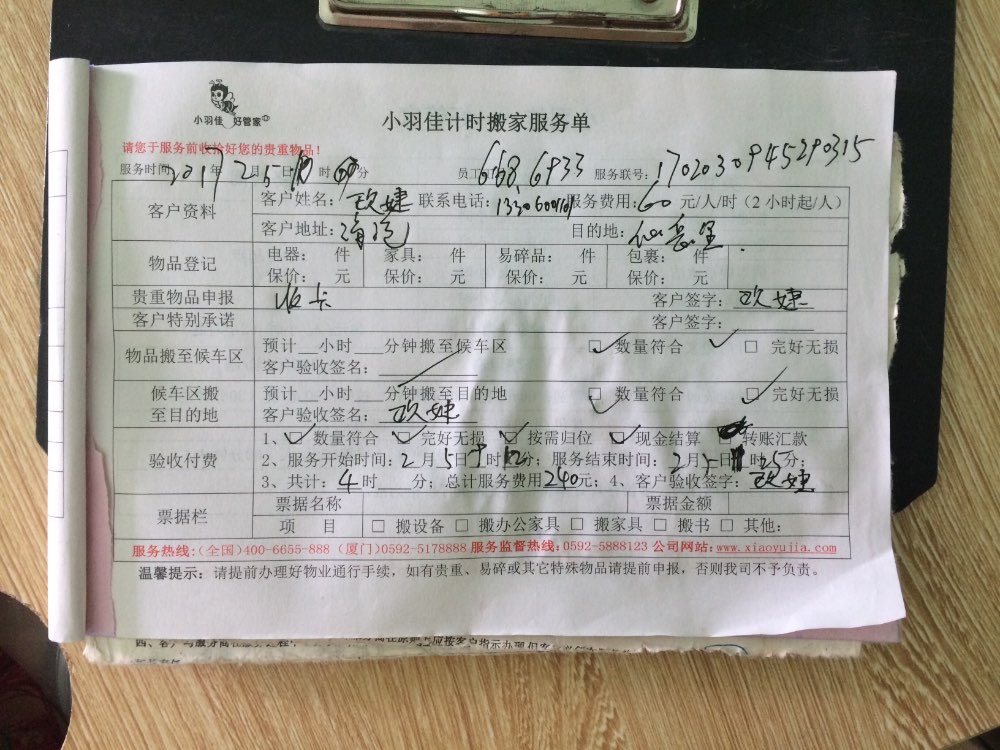 小羽佳 好管家
小羽佳计时搬家服务单
请您于服务前收拾好您的贵重物品！
服务时间 2017年 2月5日 时 分 员工 668.6933 服务联号：1702030945290315
客户资料 客户姓名： 联系电话： 服务费用：60 元/人/时（2小时起/人）
客户地址： 目的地：
物品登记 电器： 件 家具： 件 易碎品： 件 包裹： 件
保价： 元 保价： 元 保价： 元 保价： 元
贵重物品申报 客户签字：
客户特别承诺 客户签字：
物品搬至候车区 预计__小时___分钟搬至候车区 □ 数量符合 □ 完好无损
客户验收签名：
候车区搬至目的地 预计__小时___分钟搬至目的地 □ 数量符合 □ 完好无损
客户验收签名：
验收付费 1、□数量符合 □完好无损 □按需归位 □现金结算 转账汇款
2、服务开始时间：2月5日 时 分；服务结束时间：2月5日 时25分；
3、共计：4时___分；总计服务费用240元；4、客户验收签字：
票据栏 票据名称 票据金额
项 目 □ 搬设备 □ 搬办公家具 □ 搬家具 □ 搬书 □ 其他：
服务热线：(全国)400-6655-888 (厦门)0592-5178888 服务监督热线：0592-5888123 公司网站：www.xiaoyujia.com
温馨提示：请提前办理好物业通行手续，如有贵重、易碎或其它特殊物品请提前申报，否则我司不予负责。